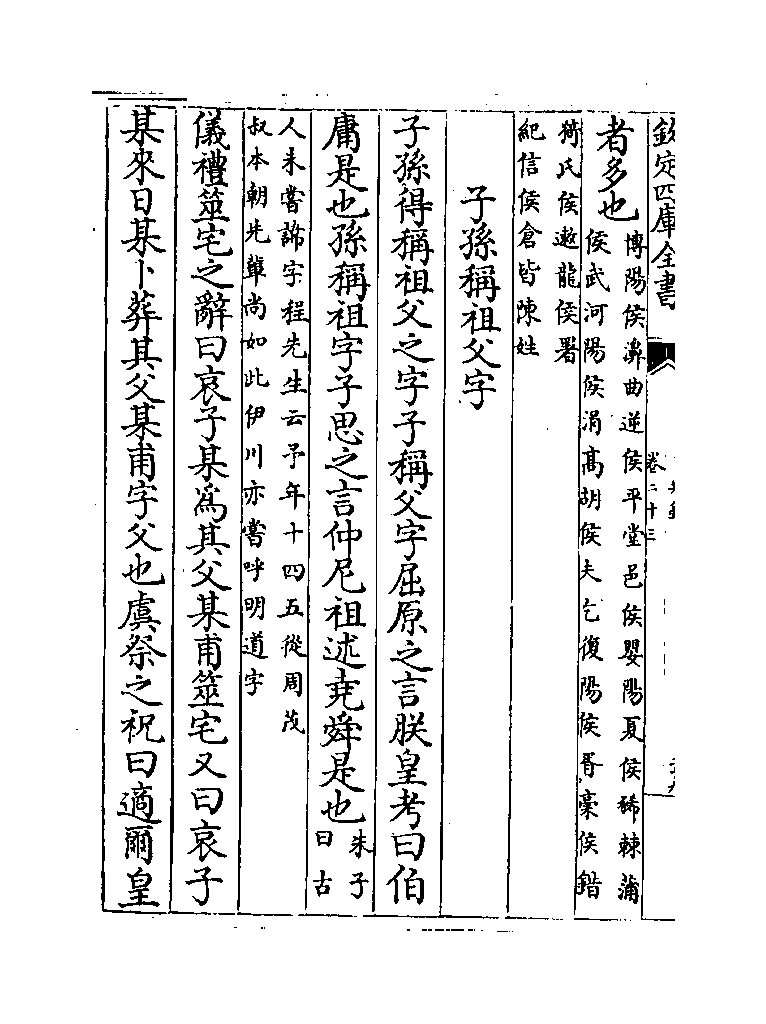 欽定四庫全書
卷二十三
者多也博陽侯濞曲逆侯平堂邑侯嬰陽夏侯豨棘蒲
侯武河陽侯涓高胡侯夫乞復陽侯胥橐侯錯
猗氏侯遬龍侯署
紀信侯倉皆陳姓
子孫稱祖父字
子孫得稱祖父之字子稱父字屈原之言朕皇考曰伯
庸是也孫稱祖字子思之言仲尼祖述堯舜是也朱子
曰古
人未嘗諱字程先生云予年十四五從周茂
叔本朝先輩尚如此伊川亦嘗呼明道字
儀禮筮宅之辭曰哀子某為其父某甫筮宅又曰哀子
某來日某卜葬其父某甫字父也虞祭之祝曰適爾皇